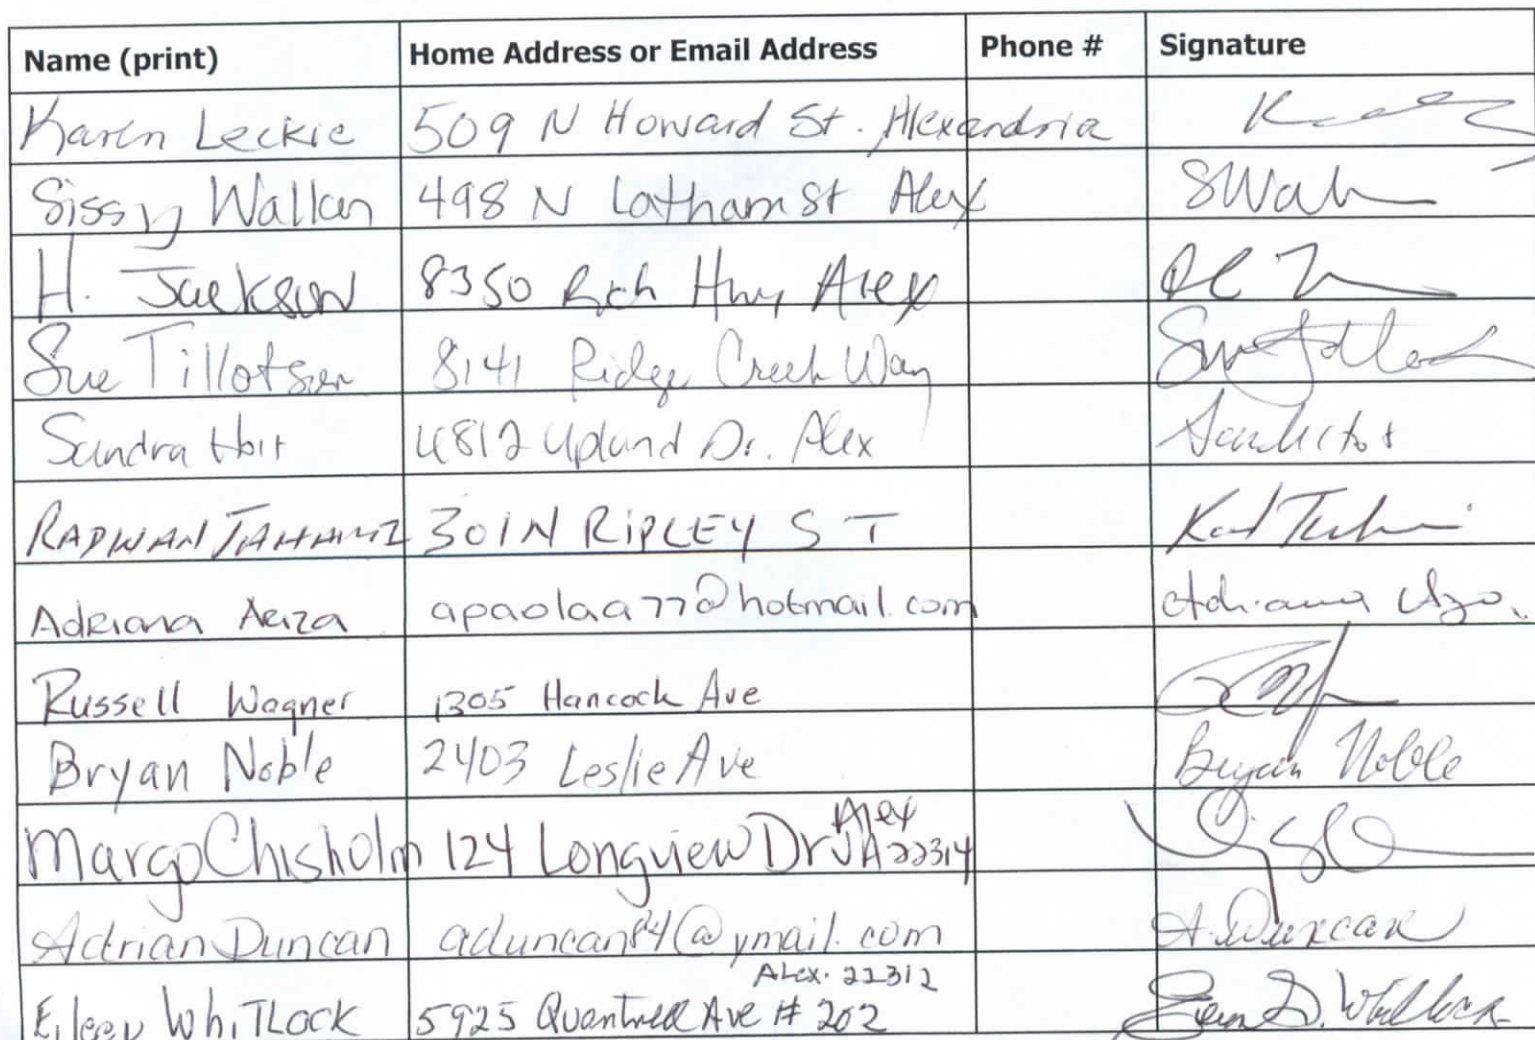 Name (print) Home Address or Email Address Phone # Signature
Karen Leckie 509 N Howard St. Alexandria
Sissy Wallan 498 N Latham St Alex SWal
H. Jackson 8350 Rich Hwy Alex
Sue Tillotson 8141 Ridge Creek Way Sue Tillotson
Sandra Hoit 4812 Upland Dr. Alex
RADWAN 301 N RIPLEY ST
Adriana Ariza apaolaa77@hotmail.com Adriana
Russell Wagner 1305 Hancock Ave
Bryan Noble 2403 Leslie Ave Bryan Noble
Margo Chisholm 124 Longview Dr Alex VA 22314
Adrian Duncan aduncan84@ymail.com A. Duncan
Alex. 22312
Eileen WhiTLock 5925 Quantrell Ave # 202 Eileen D. Whitlock